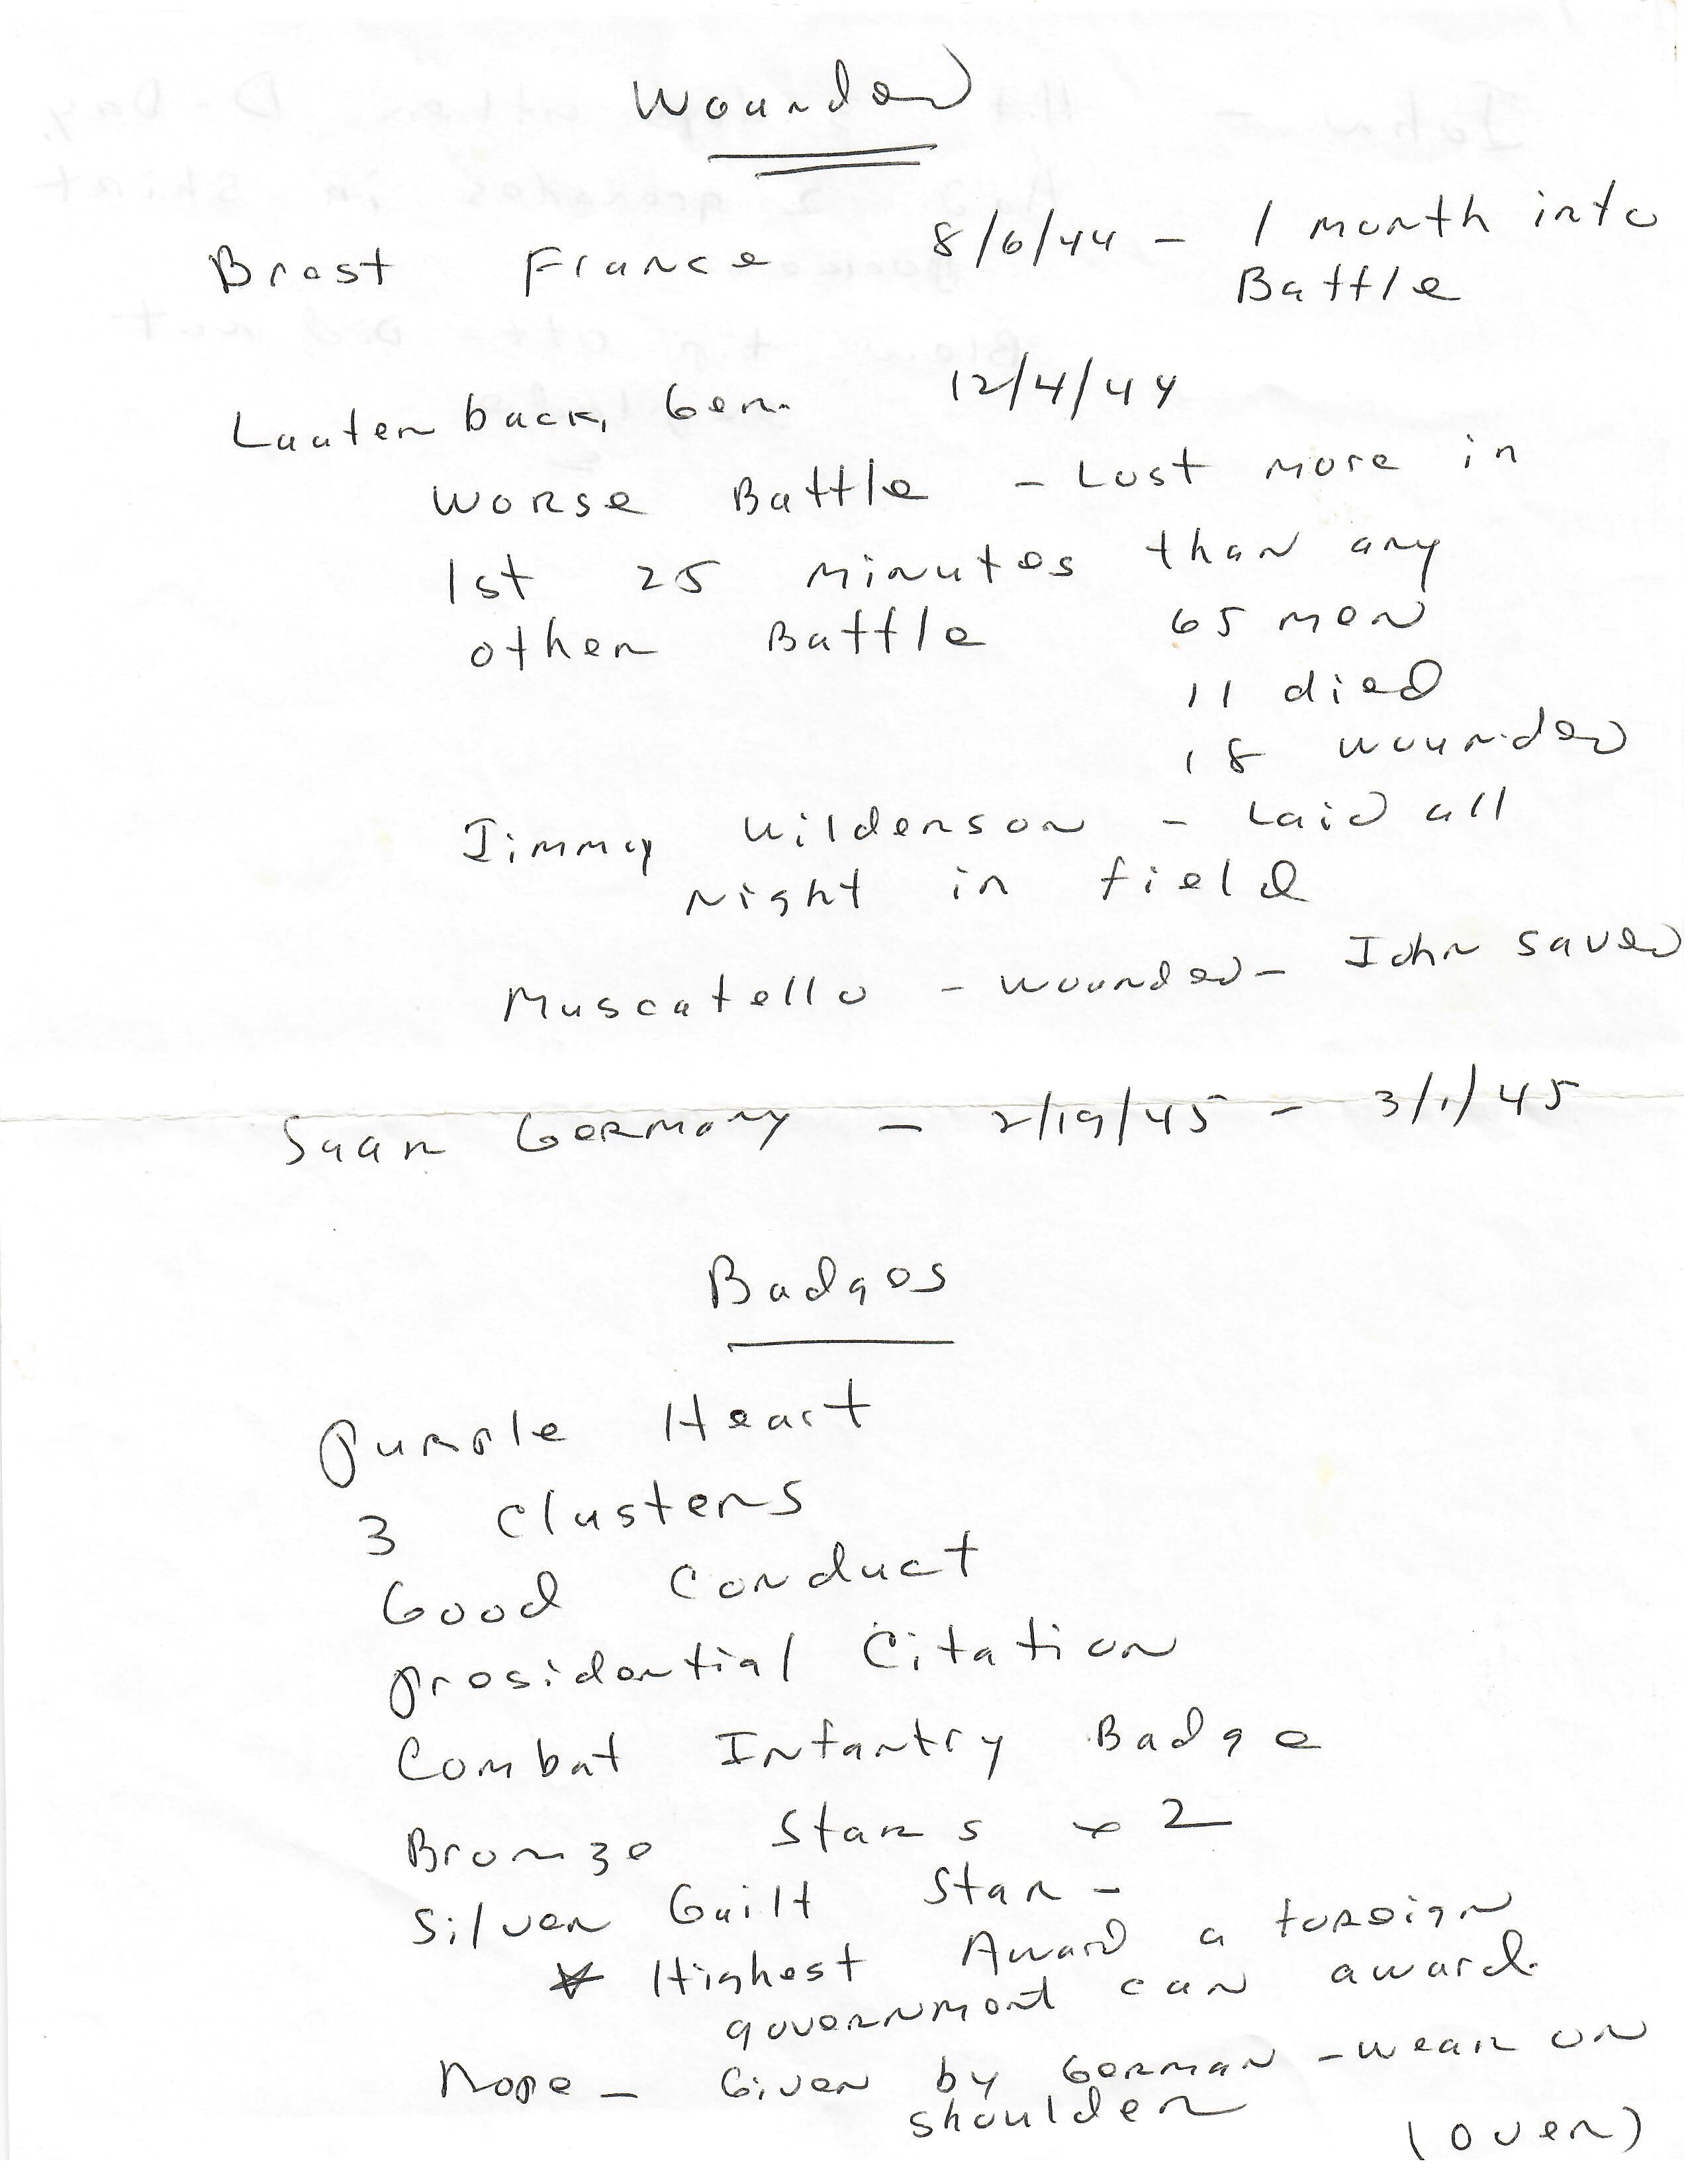 Wounded
Brest France 8/6/44 - 1 month into
Battle
Lauten back, Ger. 12/4/44
Worse Battle - Lost more in
1st 25 minutes than any
other Battle 65 men
11 died
18 wounded
Jimmy Wilderson - Laid all
Night in field
Muscatello - wounded - John saved
Saar Germany - 2/19/45 - 3/1/45
Badges
Purple Heart
3 Clusters
Good Conduct
Presidential Citation
Combat Infantry Badge
Bronze Stars x 2
Silver Guilt Star -
* Highest Award a foreign
government can award.
Rope - Given by German - wear on
shoulder
(over)